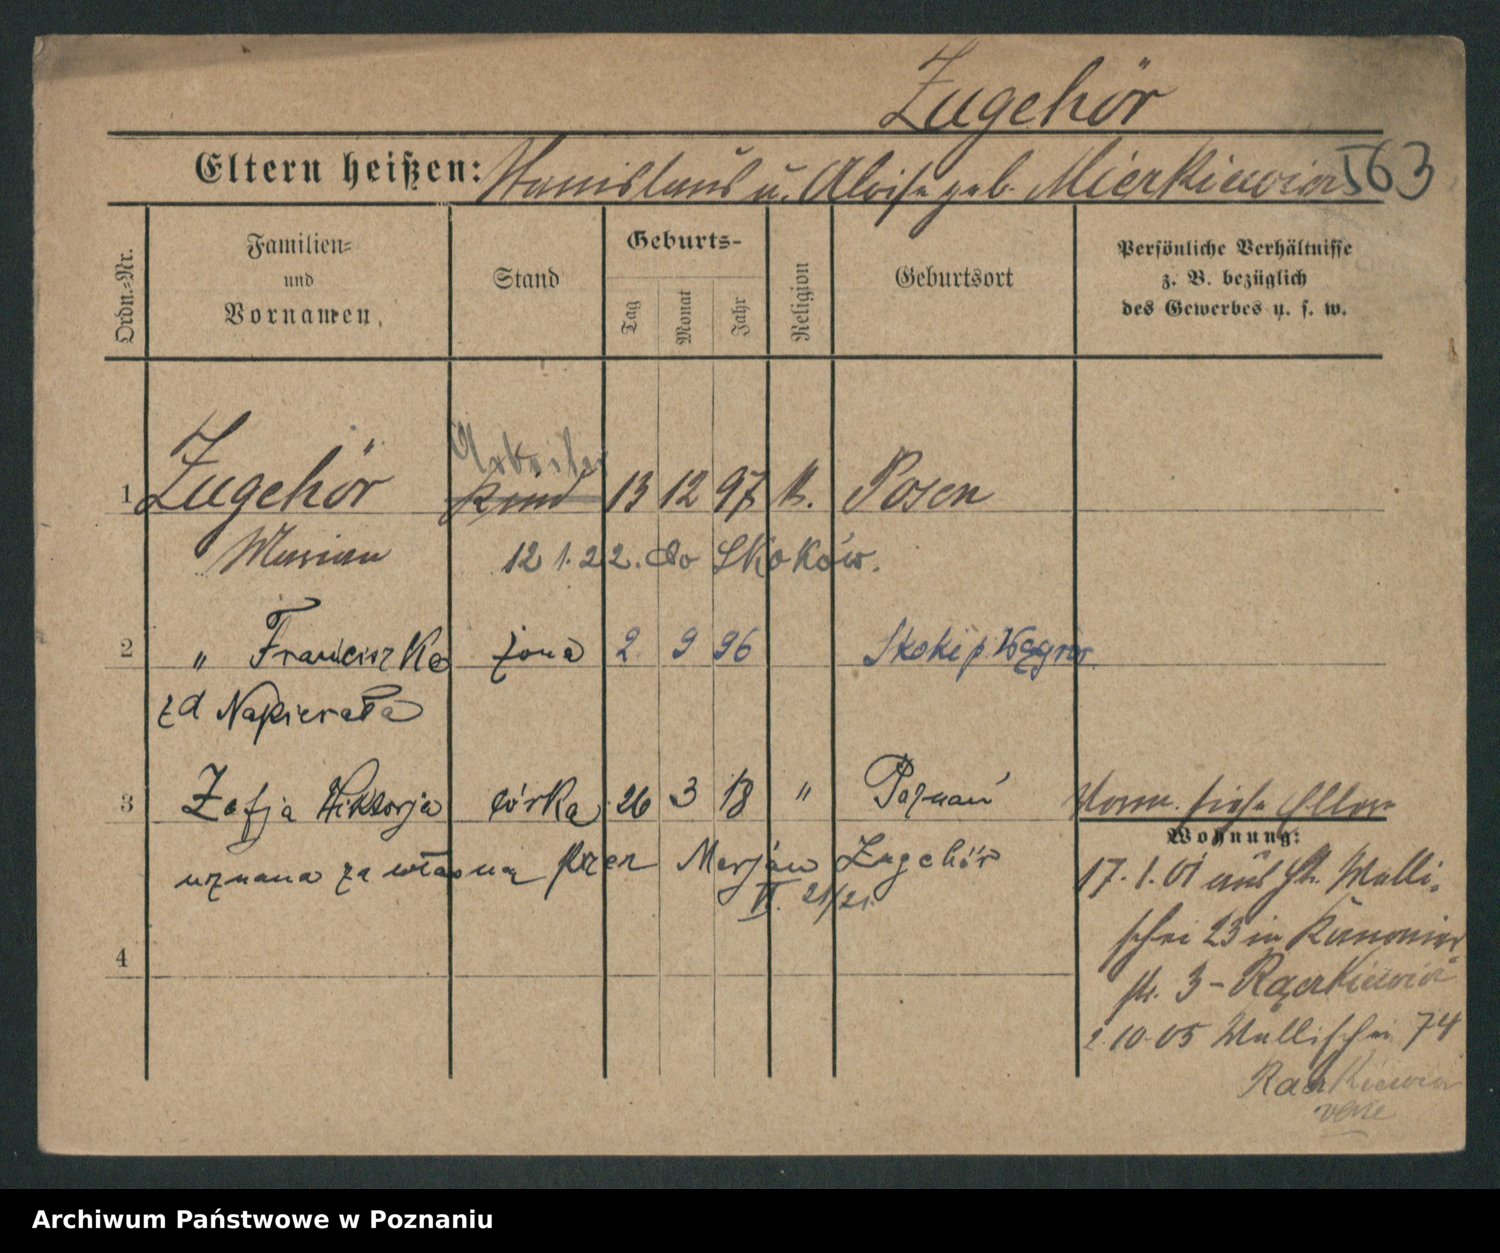 Zugehör
Eltern heißen: Stanislaus u. Aloise geb. Mierkiewicz 563
Ordn.-Nr.
Familien- und Vornamen.
Stand
Geburts-
Tag
Monat
Jahr
Religion
Geburtsort
Persönliche Verhältnisse
z. B. bezüglich
des Gewerbes u. s. w.
Arbeiter
1 Zugehör Kind 13 12 97 k. Posen
Marian 12 1. 22. do Skoków.
2 " Franciszka żona 2. 9 96 Skoki p. Wągrow.
zd Napierała
3 Zofja Wiktorja córka 26 3 18 " Poznań
Vorm. siehe Eltern
uznana za własną przez Marjan Zugehör
VI. 21/21.
4
Wohnung:
17. 1. 01 aus St. Walli-
schei 23 in Kanonier
str. 3 - Raczkiewicz
2 10 05 Wallischei 74
Raczkiewicz